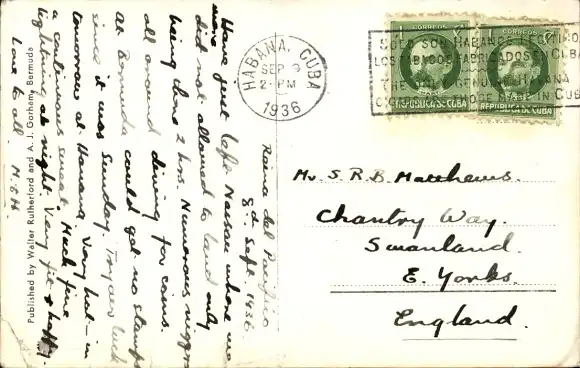 Reina del Pacifico
8th Sept. 1936.
Have just left Nassau where we
were
did not allowed to land only
being there 2 hrs. Numerous niggers
all around diving for coins.
At Bermuda could get no stamps
since it was Sunday. Try our luck
tomorrow at Havana. Very hot – in
a continuous sweat. Much fine
lightning at night. Very fit & happy.
Love to all. 
Published by Walter Rutherford and A. J. Gorham, Bermuda
HABANA, CUBA
SEP
2-PM
1936
CORREOS
CORREOS
REPUBLICA DE CUBA
REPUBLICA DE CUBA
SOLO SON HABANOS
LOS TABACOS FABRICADOS EN CUBA
THE ONLY GENUINE HAVANA
CIGARS ARE THOSE MADE IN CUBA
Mr S. R. B. Matthews.
Chantry Way.
Swanland.
E. Yorks.
England.